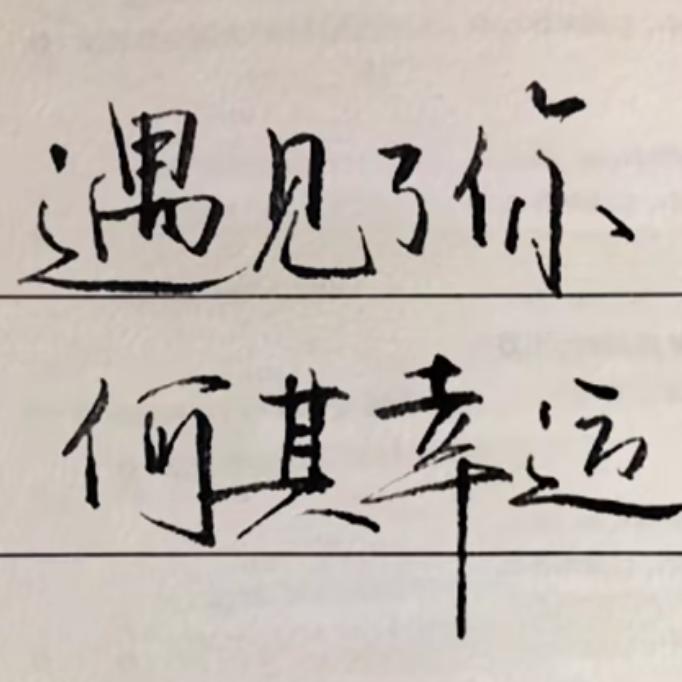 遇见了你
何其幸运